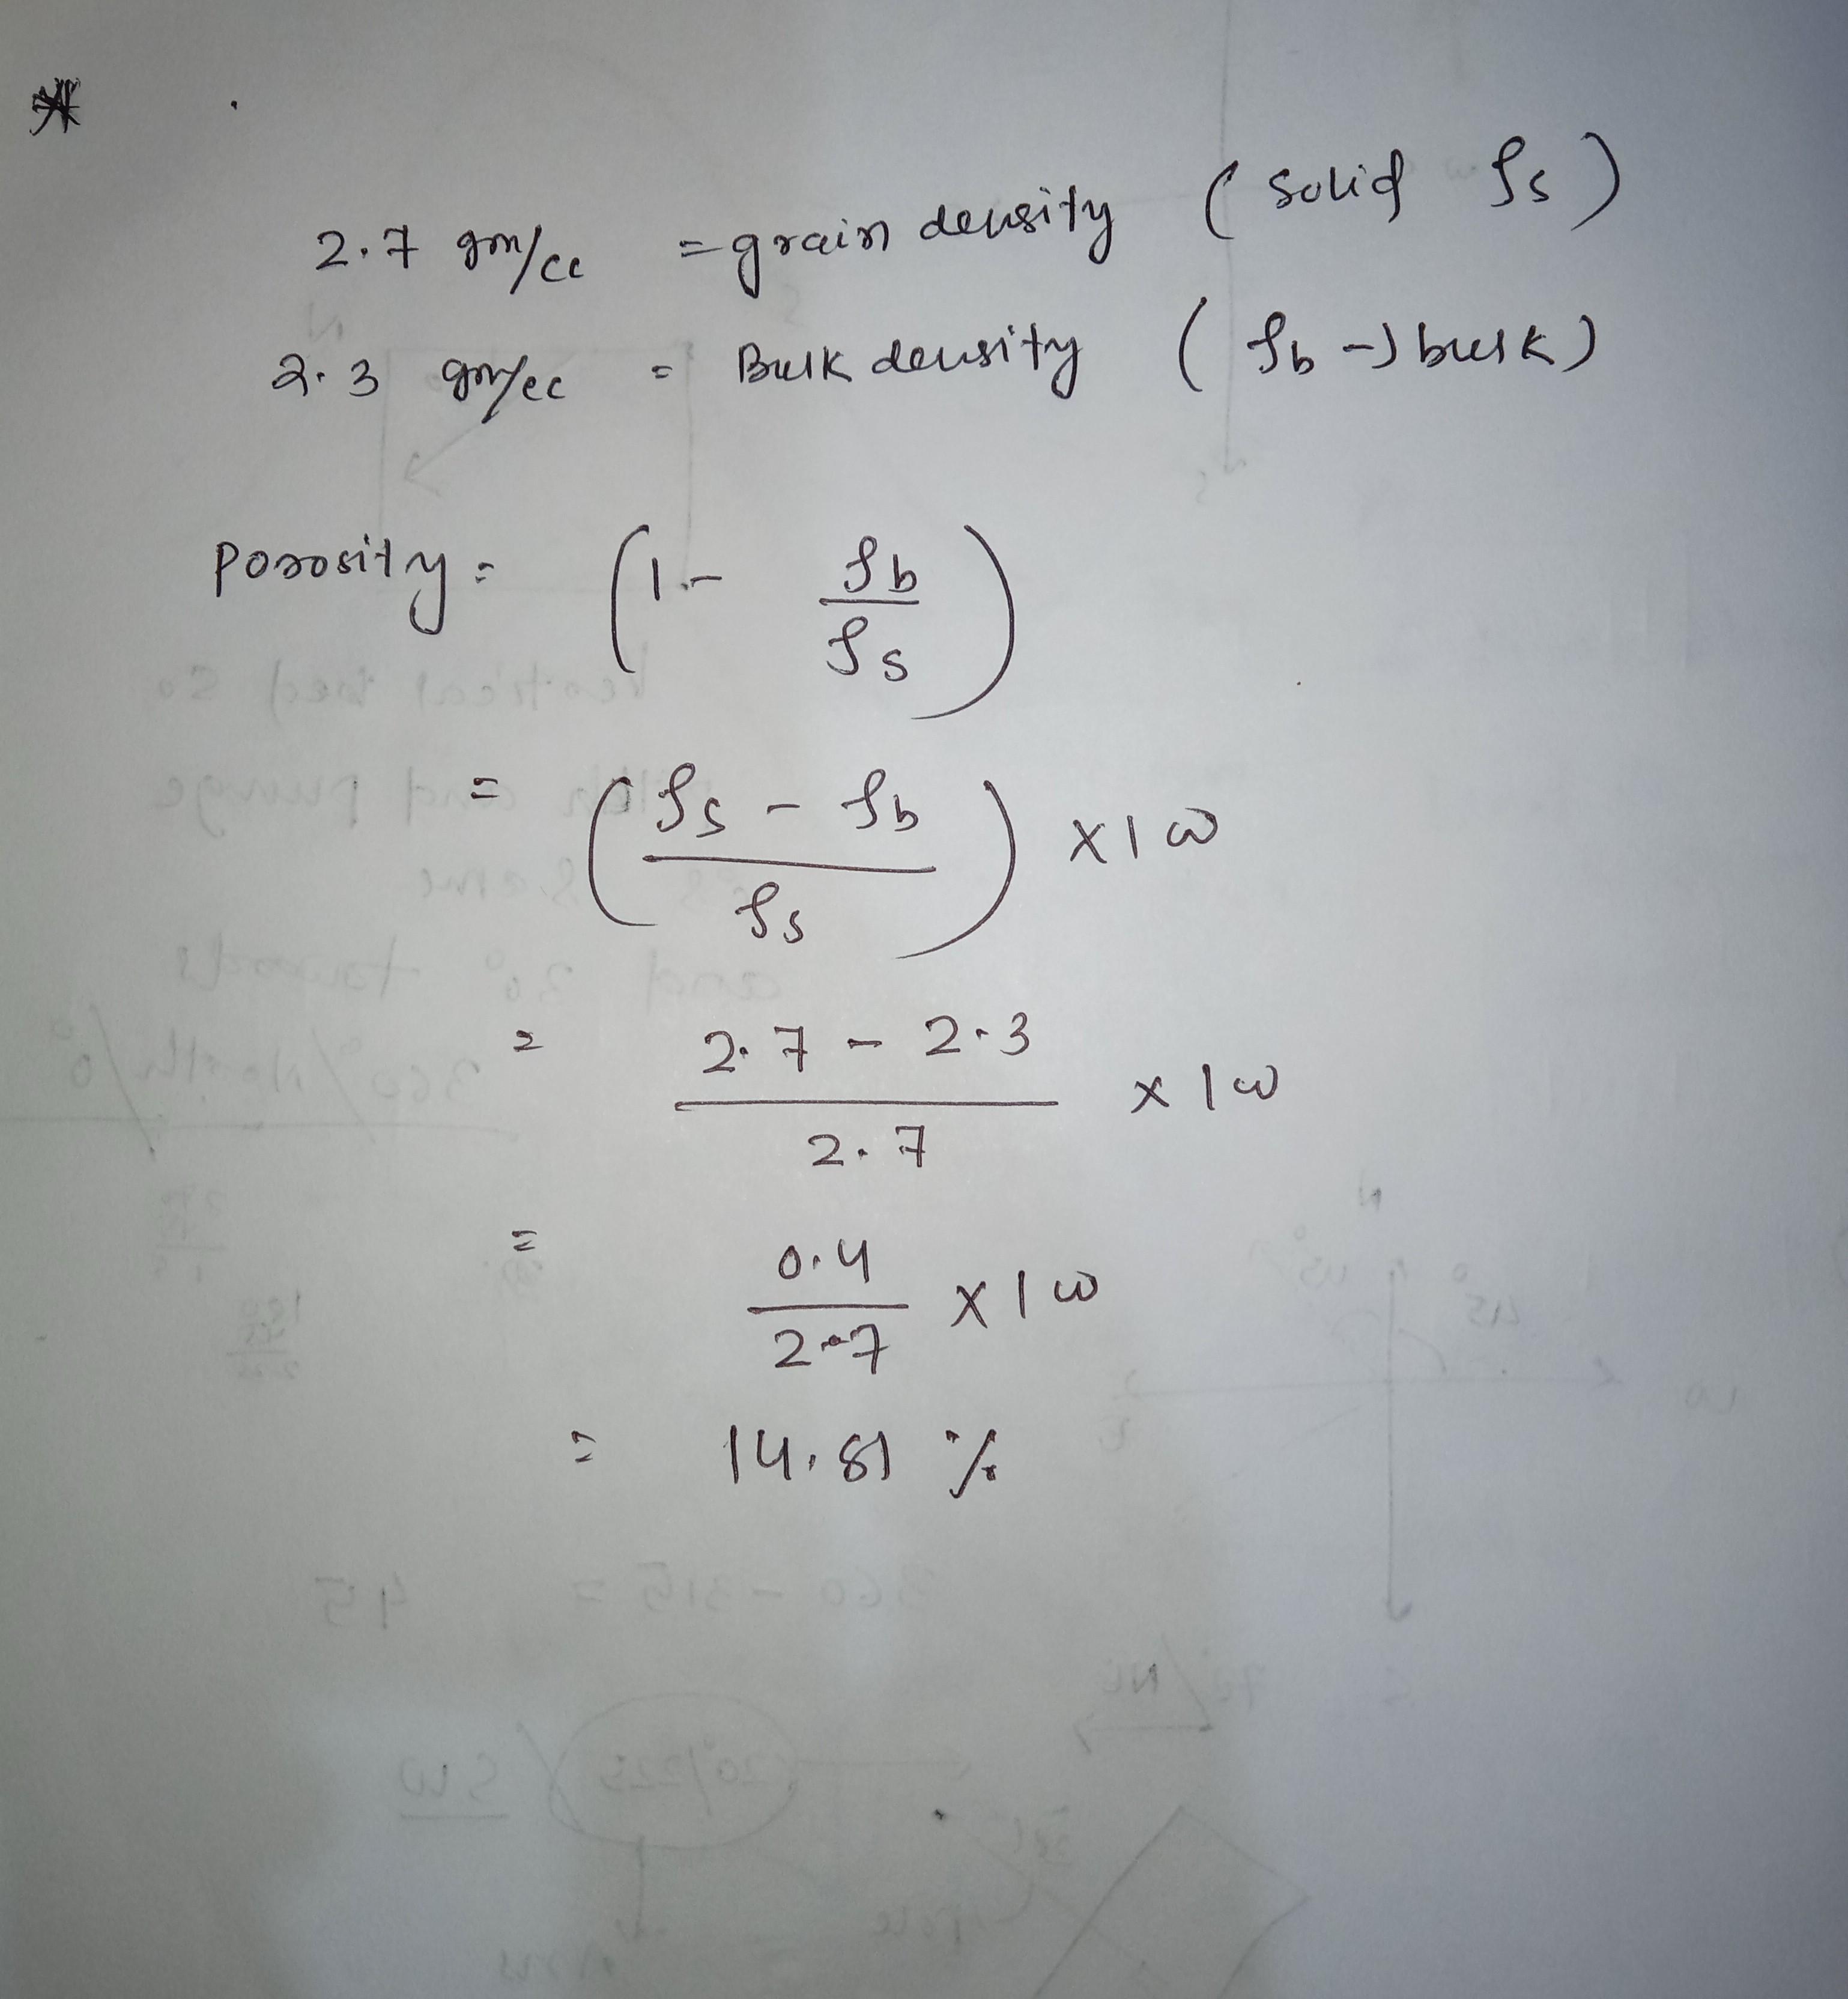 2.7 gm/cc = grain density (solid ρs)
2.3 gm/cc = Bulk density (ρb → bulk)
Porosity = (1 - ρb/ρs)
= (ρs - ρb / ρs) x 100
= 2.7 - 2.3 / 2.7 x 100
= 0.4 / 2.7 x 100
= 14.81 %